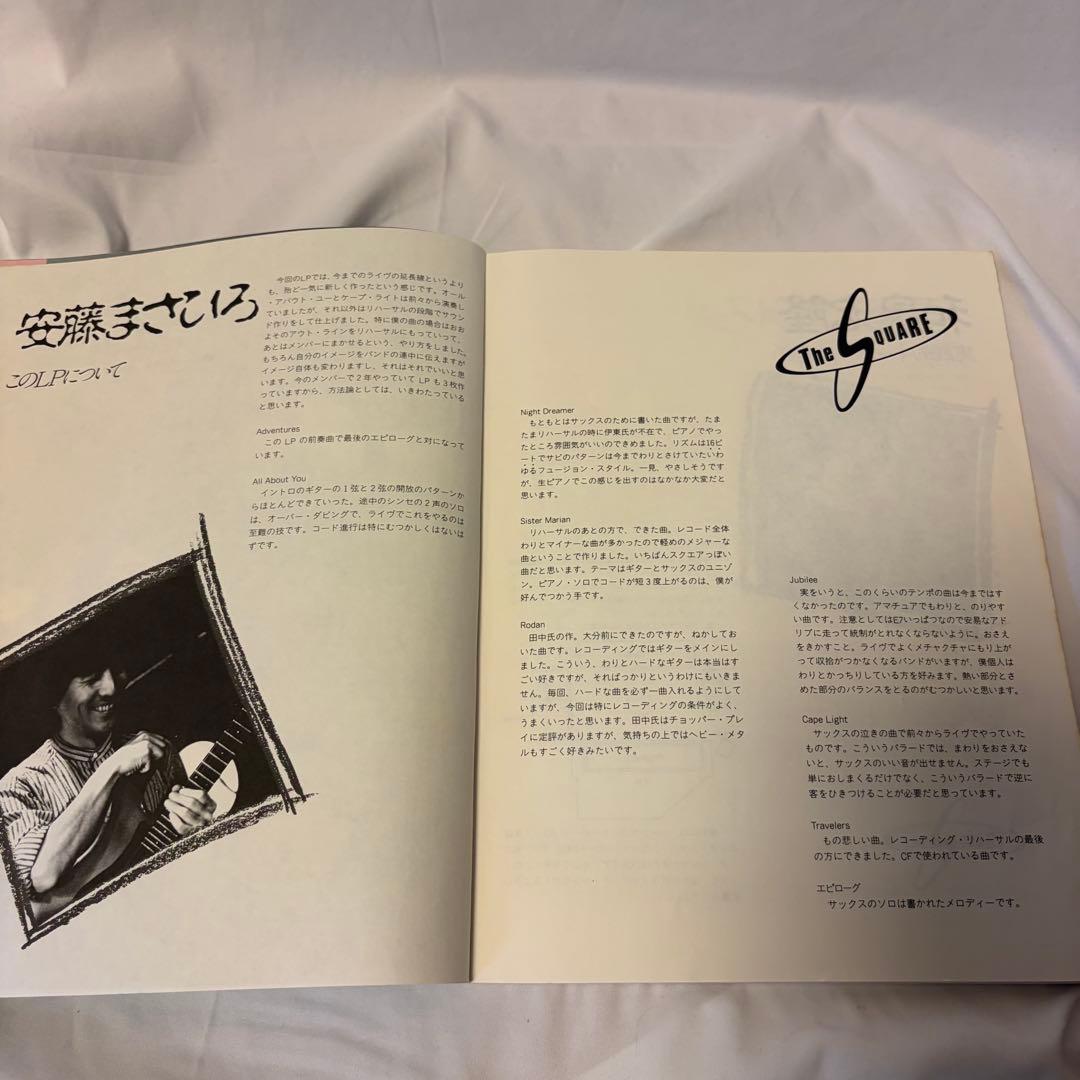 安藤まさひろ
このLPについて
今回のLPでは、今までのライヴの延長線というより
も、殆ど一気に新しく作ったという感じです。オール
・アバウト・ユーとケープ・ライトは前々から演奏し
ていましたが、それ以外はリハーサルの段階でサウン
ド作りをして仕上げました。特に僕の曲の場合はおお
よそのアウト・ラインをリハーサルにもっていって、
あとはメンバーにまかせるという、やり方をしました。
もちろん自分のイメージをバンドの連中に伝えますが
イメージ自体も変わりますし、それはそれでいいと思
います。今のメンバーで2年やっていて LP も3枚作
っていますから、方法論としては、いきわたっている
と思います。
Adventures
この LP の前奏曲で最後のエピローグと対になって
います。
All About You
イントロのギターの1弦と2弦の開放のパターンか
らほとんどできていった。途中のシンセの2声のソロ
は、オーバー・ダビングで、ライヴでこれをやるのは
至難の技です。コード進行は特にむつかしくはないは
ずです。
The SQUARE
Night Dreamer
もともとはサックスのために書いた曲ですが、たま
たまリハーサルの時に伊東氏が不在で、ピアノでやっ
たところ雰囲気がいいのできめました。リズムは16ビ
ートでサビのパターンは今までわりとさけていたいわ
ゆるフュージョン・スタイル。一見、やさしそうです
が、生ピアノでこの感じを出すのはなかなか大変だと
思います。
Sister Marian
リハーサルのあとの方で、できた曲。レコード全体
わりとマイナーな曲が多かったので軽めのメジャーな
曲ということで作りました。いちばんスクエアっぽい
曲だと思います。テーマはギターとサックスのユニゾ
ン。ピアノ・ソロでコードが短3度上がるのは、僕が
好んでつかう手です。
Rodan
田中氏の作。大分前にできたのですが、ねかしてお
いた曲です。レコーディングではギターをメインにし
ました。こういう、わりとハードなギターは本当はす
ごい好きですが、そればっかりというわけにもいきま
せん。毎回、ハードな曲を必ず一曲入れるようにして
いますが、今回は特にレコーディングの条件がよく、
うまくいったと思います。田中氏はチョッパー・プレ
イに定評がありますが、気持ちの上ではヘビー・メタ
ルもすごく好きみたいです。
Jubilee
実をいうと、このくらいのテンポの曲は今まではす
くなかったのです。アマチュアでもわりと、のりやす
い曲です。注意としてはE7いっぱつなので安易なアド
リブに走って統制がとれなくならないように。おさえ
をきかすこと。ライヴでよくメチャクチャにもり上が
って収拾がつかなくなるバンドがいますが、僕個人は
わりとかっちりしている方を好みます。熱い部分とさ
めた部分のバランスをとるのがむつかしいと思います。
Cape Light
サックスの泣きの曲で前々からライヴでやっていた
ものです。こういうバラードでは、まわりをおさえな
いと、サックスのいい音が出せません。ステージでも
単におしまくるだけでなく、こういうバラードで逆に
客をひきつけることが必要だと思っています。
Travelers
もの悲しい曲。レコーディング・リハーサルの最後
の方にできました。CFで使われている曲です。
エピローグ
サックスのソロは書かれたメロディーです。